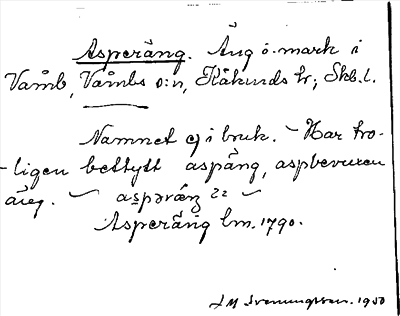 Asperäng. Äng ö. mark i
Våmb, Våmbs s:n, Kåkinds hr; Skb. l.
Namnet ej i bruk. – Har tro-
ligen betytt aspäng, aspbevuxen
äng. – aspəräŋ 22 –
Asperäng lm. 1790.
J M Svenungsson. 1950